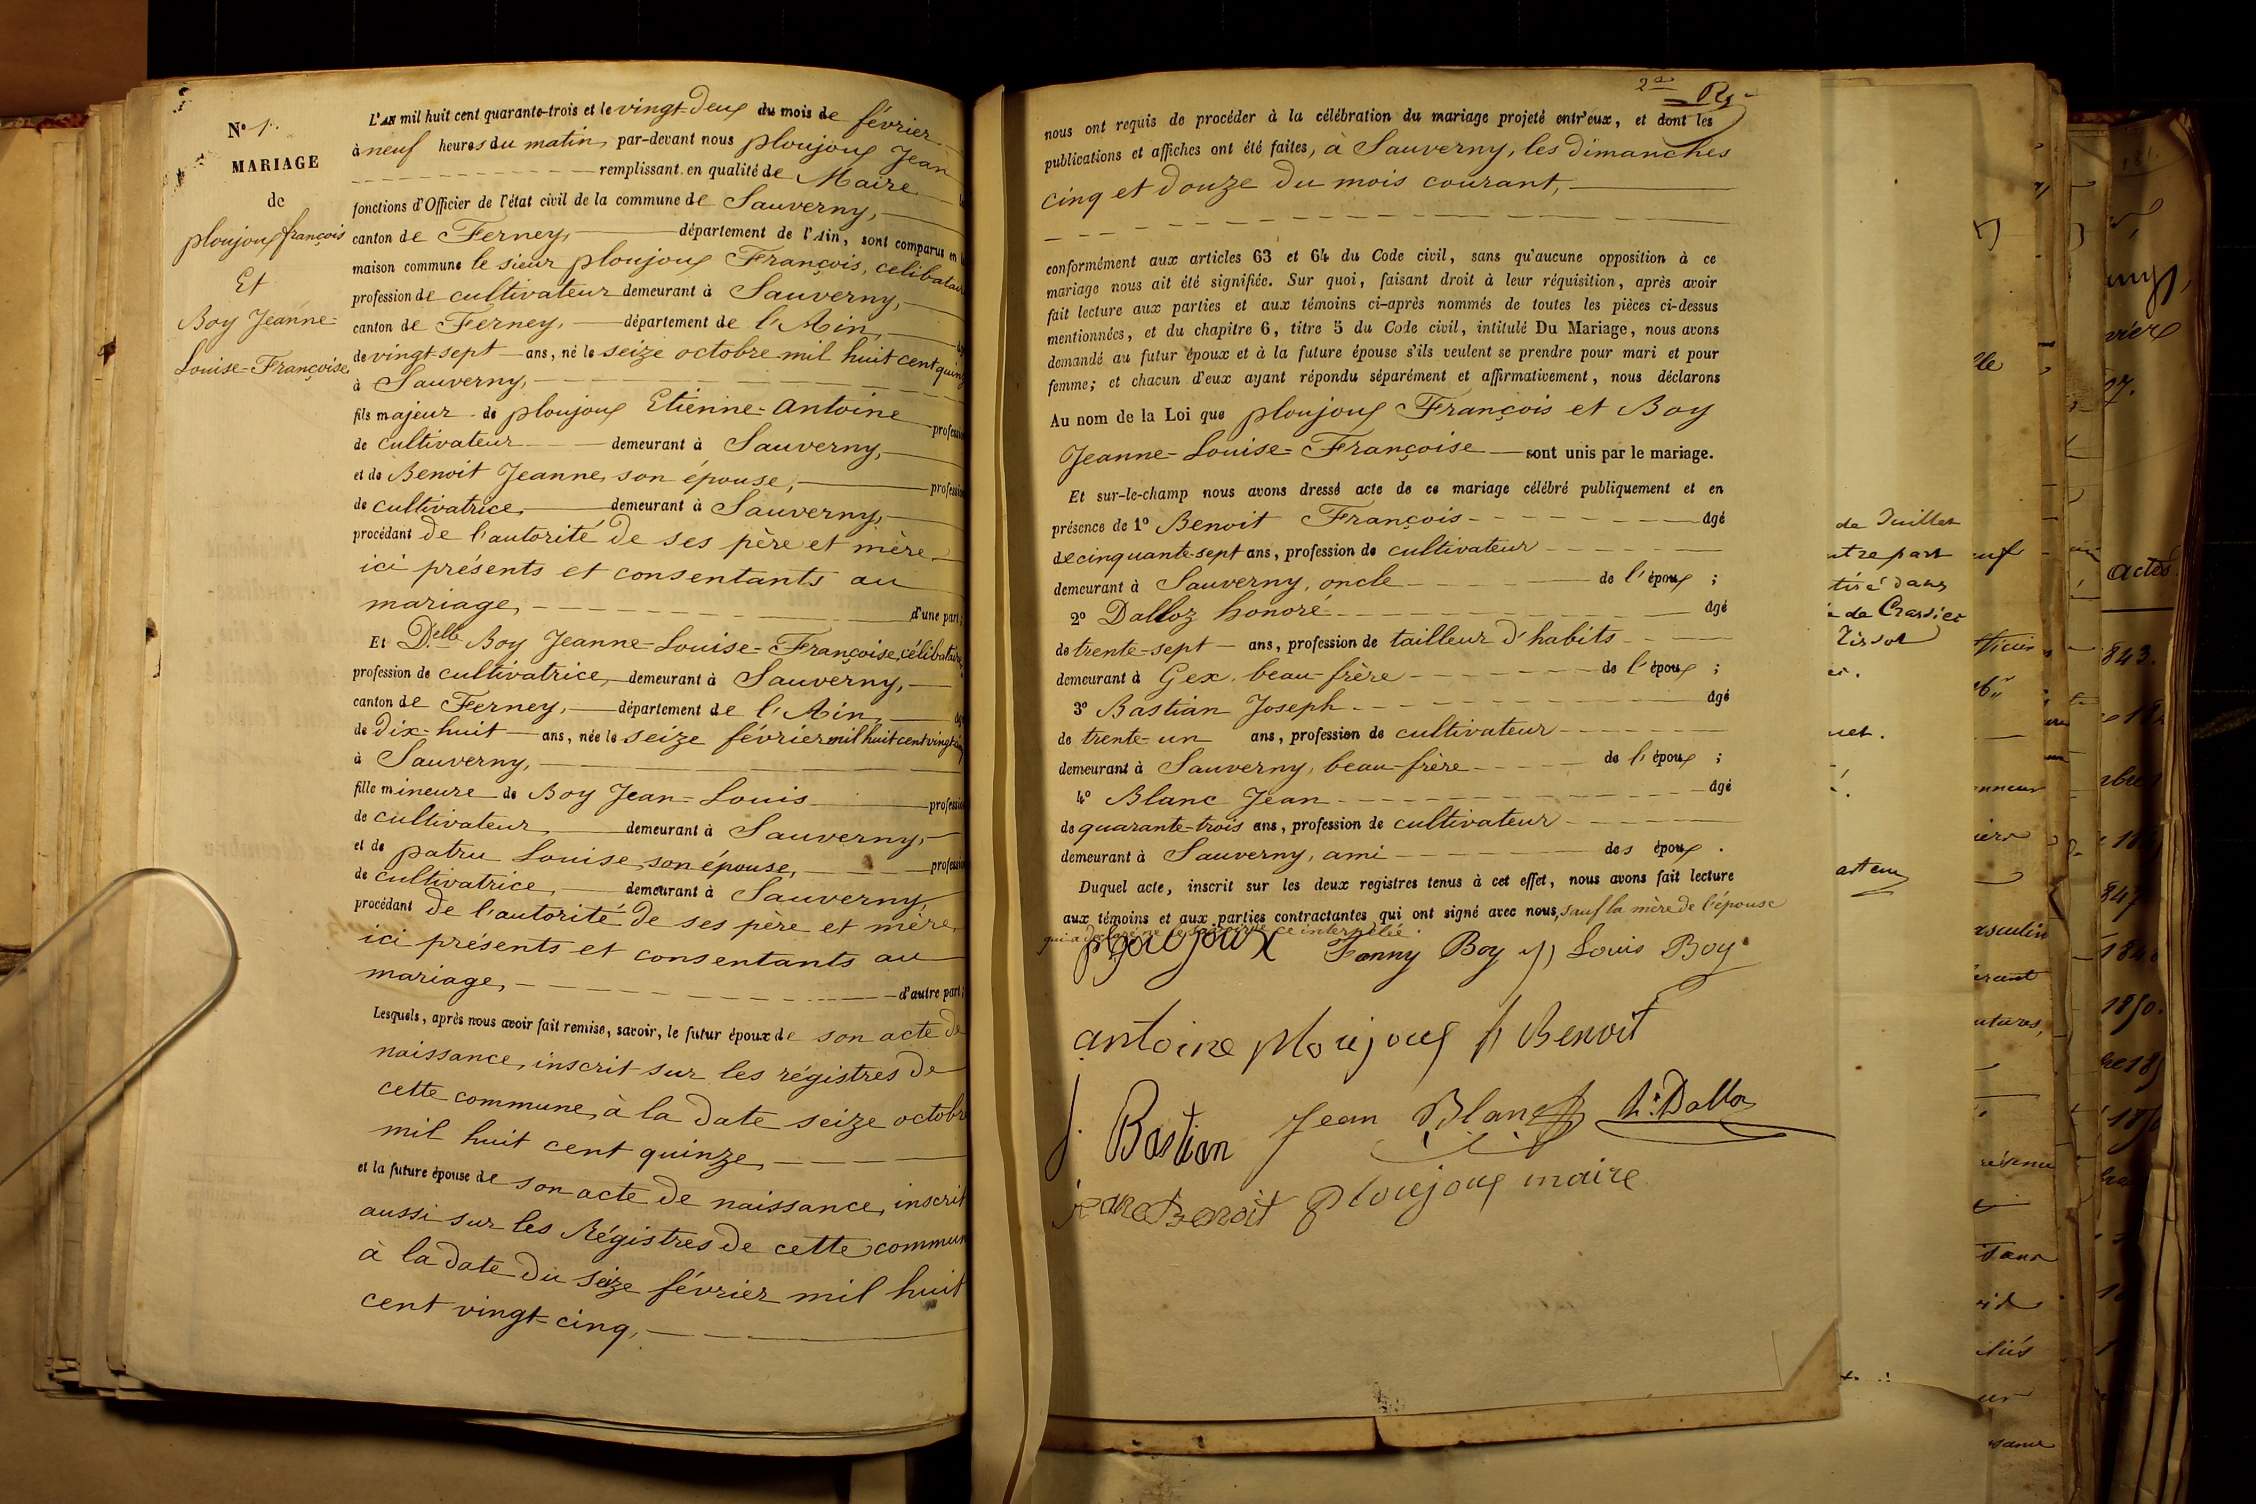 N° 1.
MARIAGE
de
ploujoux françois
Et
Boy Jeanne-
Louise-Françoise,
L'AN mil huit cent quarante-trois et le vingt-deux du mois de février
à neuf heures du matin, par-devant nous ploujoux Jean
remplissant en qualité de Maire
fonctions d'Officier de l'état civil de la commune de Sauverny,
canton de Ferney, département de l'Ain, sont comparus en
maison commune le sieur ploujoux François, célibataire
profession de cultivateur demeurant à Sauverny,
canton de Ferney, département de l'Ain,
de vingt-sept ans, né le seize octobre mil huit cent quinze
à Sauverny,
fils majeur de ploujoux Etienne-Antoine profession
de cultivateur demeurant à Sauverny,
et de Benoit Jeanne, son épouse, profession
de cultivatrice, demeurant à Sauverny,
procédant de l'autorité de ses père et mère
ici présents et consentants au
mariage, d'une part;
Et Delle Boy Jeanne-Louise-Françoise, célibataire,
profession de cultivatrice, demeurant à Sauverny,
canton de Ferney, département de l'Ain,
de dix-huit ans, née le seize février mil huit cent vingt-cinq
à Sauverny,
fille mineure de Boy Jean-Louis profession
de cultivateur, demeurant à Sauverny,
et de patru Louise, son épouse, profession
de cultivatrice, demeurant à Sauverny,
procédant de l'autorité de ses père et mère,
ici présents et consentants au
mariage, d'autre part;
Lesquels, après nous avoir fait remise, savoir, le futur époux de son acte de
naissance, inscrit sur les régistres de
cette commune, à la date seize octobre
mil huit cent quinze,
et la future épouse de son acte de naissance, inscrit
aussi sur les Régistres de cette commun
à la date du seize février mil huit
cent vingt-cinq,
nous ont requis de procéder à la célébration du mariage projeté entr'eux, et dont les
publications et affiches ont été faites, à Sauverny, les dimanches
cinq et douze du mois courant,
conformément aux articles 63 et 64 du Code civil, sans qu'aucune opposition à ce
mariage nous ait été signifiée. Sur quoi, faisant droit à leur réquisition, après avoir
fait lecture aux parties et aux témoins ci-après nommés de toutes les pièces ci-dessus
mentionnées, et du chapitre 6, titre 5 du Code civil, intitulé Du Mariage, nous avons
demandé au futur époux et à la future épouse s'ils veulent se prendre pour mari et pour
femme; et chacun d'eux ayant répondu séparément et affirmativement, nous déclarons
Au nom de la Loi que ploujoux François et Boy
Jeanne-Louise-Françoise sont unis par le mariage.
Et sur-le-champ nous avons dressé acte de ce mariage célébré publiquement et en
présence de 1° Benoit François âgé
de cinquante-sept ans, profession de cultivateur
demeurant à Sauverny, oncle de l'époux;
2° Dalloz honoré âgé
de trente-sept ans, profession de tailleur d'habits
demeurant à Gex, beau-frère de l'époux;
3° Bastian Joseph âgé
de trente-un ans, profession de cultivateur
demeurant à Sauverny, beau-frère de l'époux;
4° Blanc Jean âgé
de quarante-trois ans, profession de cultivateur
demeurant à Sauverny, ami des époux.
Duquel acte, inscrit sur les deux registres tenus à cet effet, nous avons fait lecture
aux témoins et aux parties contractantes qui ont signé avec nous, sauf la mère de l'épouse
qui a déclaré ne le savoir de ce interpelée.
ploujoux Fanny Boy Louis Boy
antoine ploujoux f Benoit
j. Bastian Jean Blanc h. Dalloz
jeane Benoit ploujoux maire
de Juillet
tiré dans
de Crassier
Tissot
actes